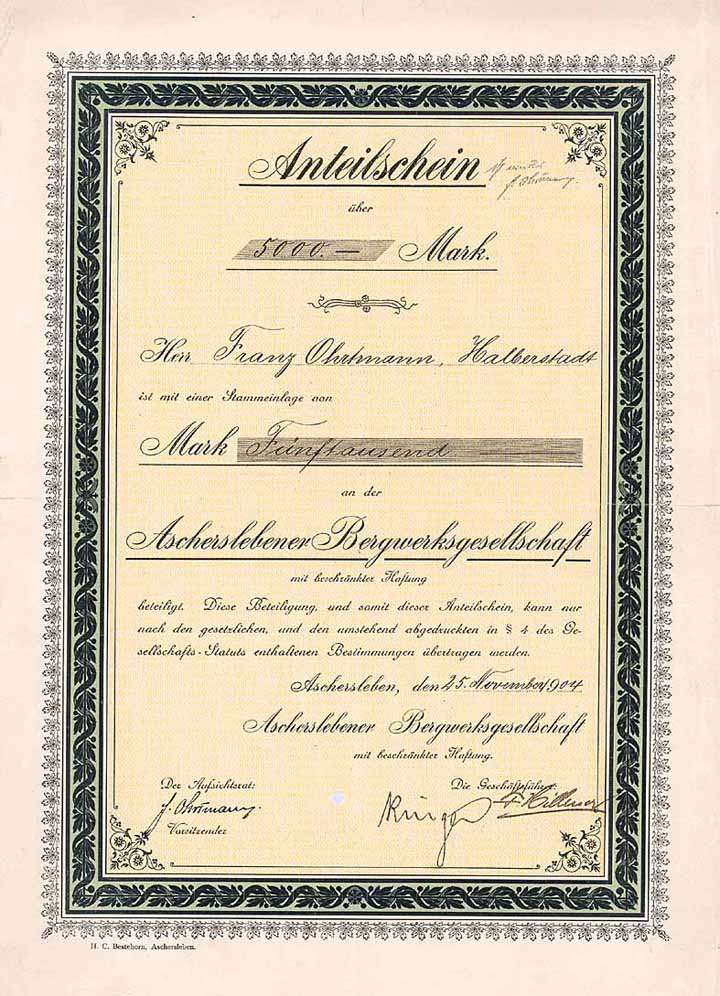 Anteilschein
über
5000.— Mark.
Herr Franz Ohrtmann, Halberstadt
ist mit einer Stammeinlage von
Mark Fünftausend —
an der
Ascherslebener Bergwerksgesellschaft
mit beschränkter Haftung
beteiligt. Diese Beteiligung, und somit dieser Anteilschein, kann nur
nach den gesetzlichen, und den umstehend abgedruckten in § 4 des Ge-
sellschafts-Statuts enthaltenen Bestimmungen übertragen werden.
Aschersleben, den 25. November 1904
Ascherslebener Bergwerksgesellschaft
mit beschränkter Haftung.
Der Aufsichtsrat: Die Geschäftsführer:
F. Ohrtmann.
Vorsitzender
H. C. Bestehorn, Aschersleben.